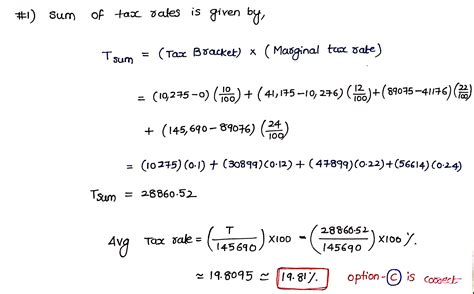 #1) Sum of tax rates is given by,
Tsum = (Tax Bracket) × (Marginal tax rate)
= (10,275-0) (10/100) + (41,175-10,276) (12/100) + (89075-41176) (22/100)
+ (145,690-89076) (24/100)
= (10275)(0.1) + (30899)(0.12) + (47899)(0.22)+(56614)(0.24)
Tsum = 28860.52
Avg Tax rate = (T/145690) ×100 = (28860.52/145690) ×100 %.
≃ 19.8095 ≃ 19.81%. option-Ⓒ is correct.